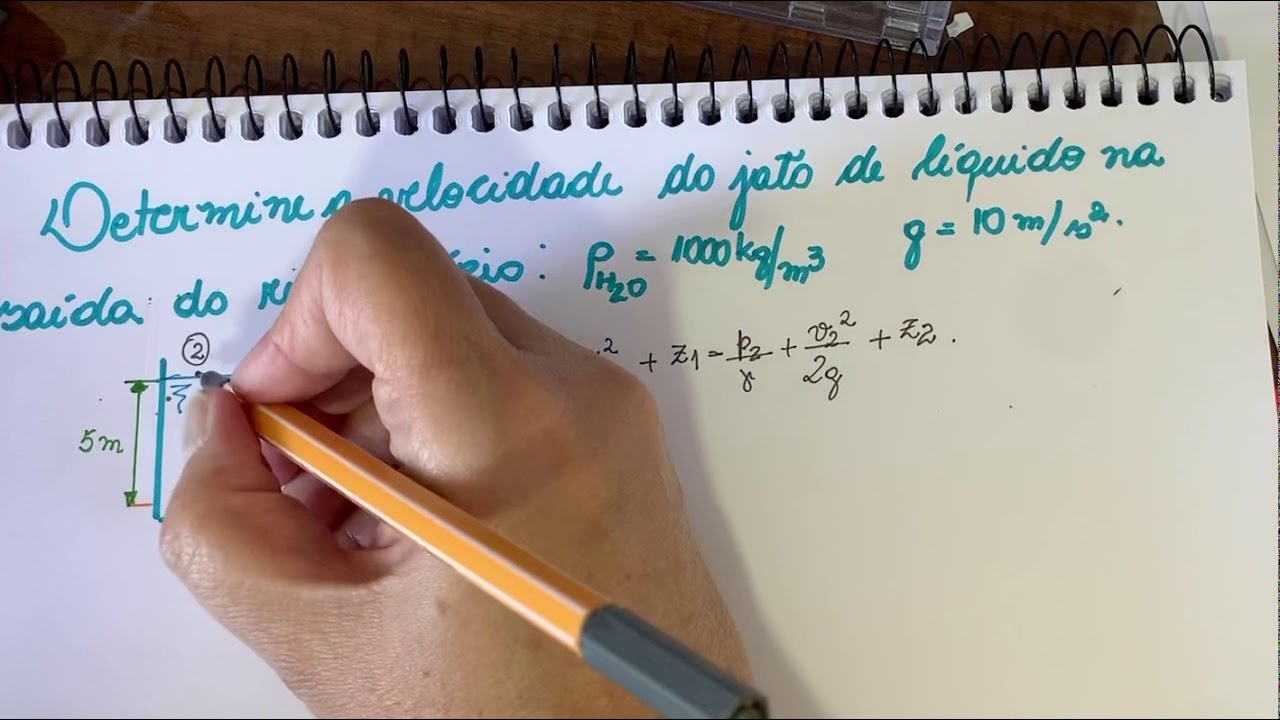 Determine a velocidade do jato de líquido na
saída do : ρH₂O = 1000 kg/m³ g = 10 m/s².
² + z1 = p2/γ + v2²/2g + z2.
2
5m